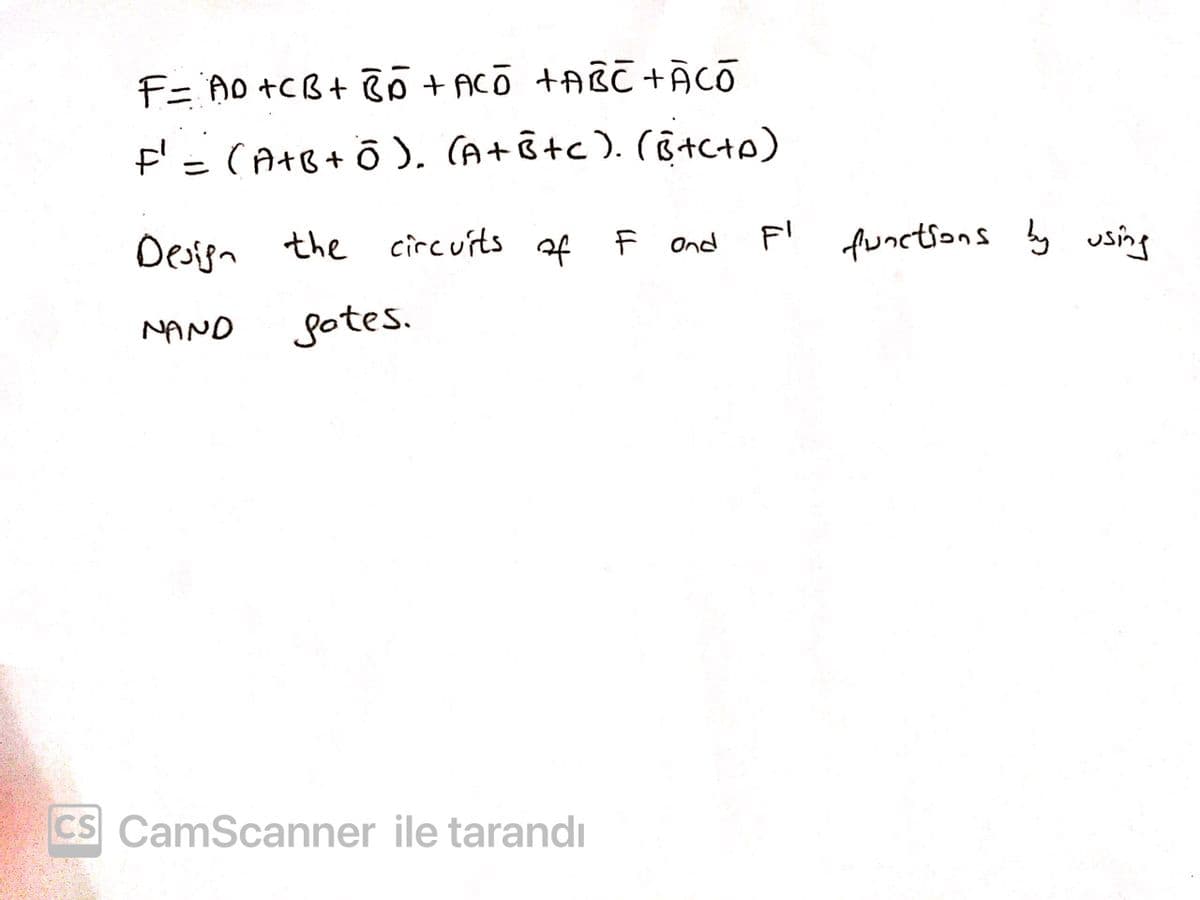 F = AD + CB + B̄D̄ + ACD̄ + AB̄C̄ + ĀCD̄
F' = (A+B+D̄). (A+B̄+C). (B̄+C+D)
Design the circuits of F and F' functions by using
NAND gates.
CS CamScanner ile tarandı